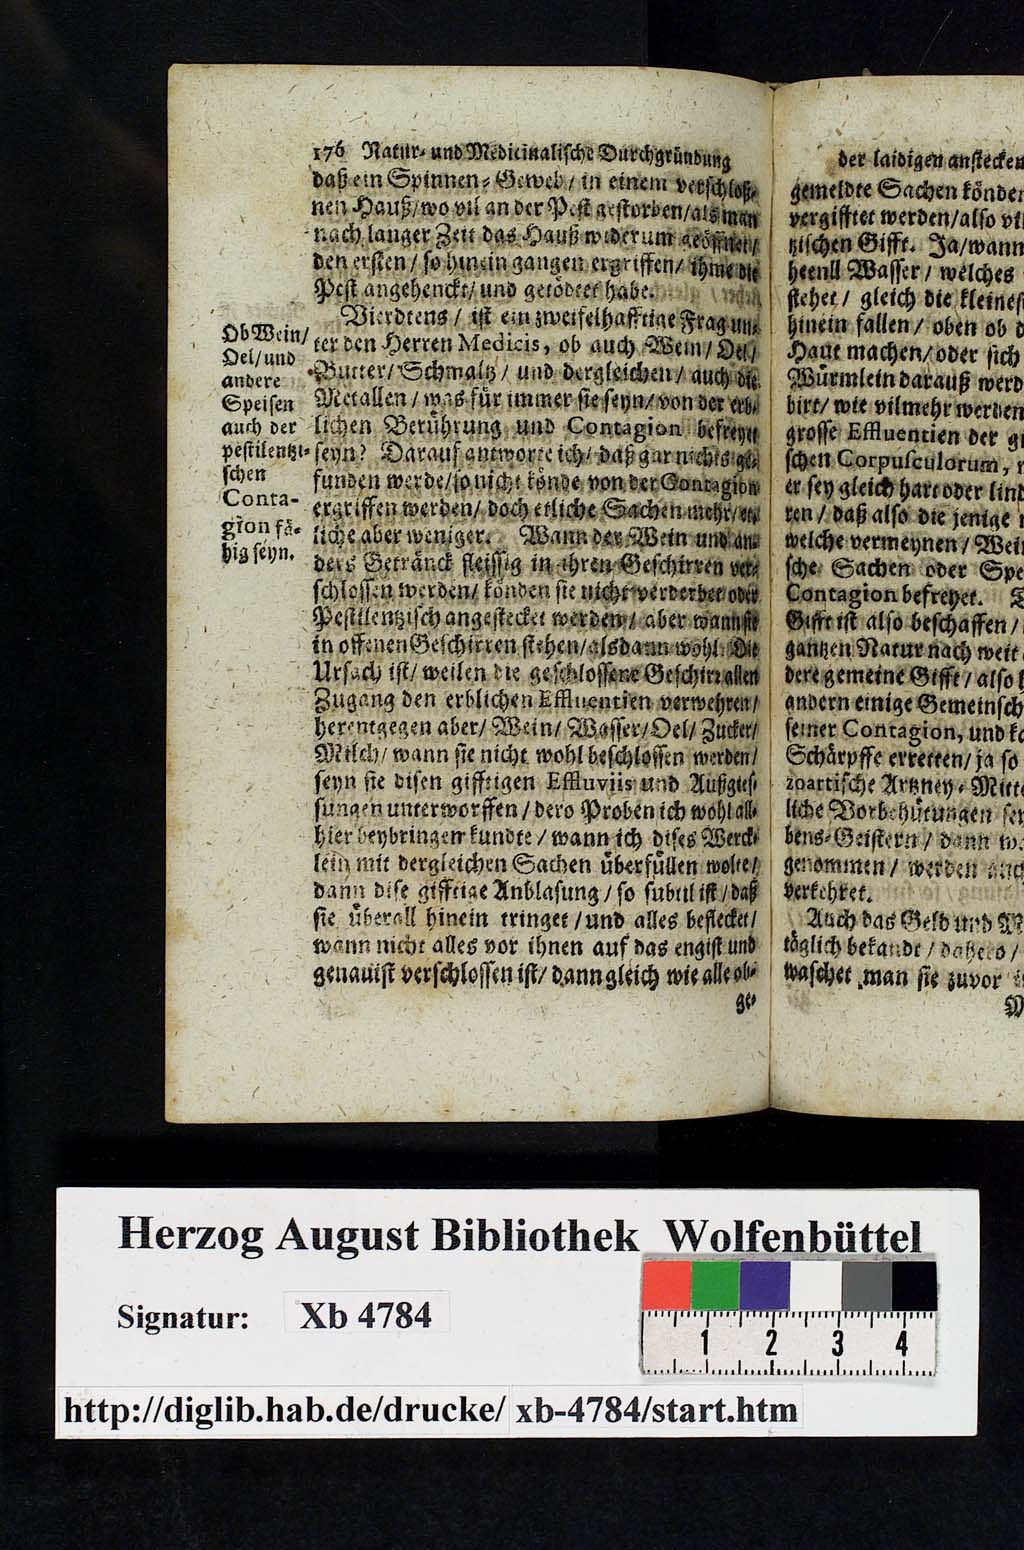 176 Natur- und Medicinalische Durchgründung
daß ein Spinnen-Geweb / in einem verschloß-
nen Hauß/ wo vil an der Pest gestorben/ als man
nach langer Zeit das Hauß widerum geöffnet/
den ersten / so hinein gangen ergriffen/ ihme die
Pest angehenckt/ und getödtet habe.
Vierdtens / ist ein zweifelhafftige Frag un-
ter den Herren Medicis, ob auch Wein/ Oel/
Butter/ Schmaltz / und dergleichen / auch die
Metallen / was für immer sie seyn/ von der erb-
lichen Berührung und Contagion befreyet
seyn? Darauf antworte ich/ daß gar nichts ge-
funden werde/ so nicht könde von der Contagion
ergriffen werden/ doch etliche Sachen mehr/ et-
liche aber weniger. Wann der Wein und an-
ders Getränck fleissig in ihren Geschirren ver-
schlossen werden/ könden sie nicht verderbet oder
Pestilentzisch angestecket werden / aber wann sie
in offenen Geschirren stehen/ alsdann wohl. Die
Ursach ist/ weilen die geschlossene Geschirr allen
Zugang den erblichen Effluentien verwehren/
herentgegen aber/ Wein/ Wasser/ Oel/ Zucker/
Milch/ wann sie nicht wohl beschlossen werden/
seyn sie disen gifftigen Effluviis und Außgies-
sungen unterworffen / dero Proben ich wohl all-
hier beybringen kundte / wann ich dises Werck-
lein mit dergleichen Sachen überfüllen wolte/
dann dise gifftige Anblasung / so subtil ist / daß
sie überall hinein tringet / und alles beflecket/
wann nicht alles vor ihnen auf das engist und
genauist verschlossen ist/ dann gleich wie alle ob-
ge-
Ob Wein/
Oel/ und
andere
Speisen
auch der
pestilentzi-
schen
Conta-
gion fä-
hig seyn.
der laidigen anstecken
gemeldte Sachen könden
vergifftet werden/ also vil
tzischen Gifft. Ja/ wann
heenll Wasser / welches
stehet / gleich die kleines
hinein fallen / oben ob d
Haut machen/ oder sich
Würmlein darauß werd
birt/ wie vilmehr werden
grosse Effluentien der gi
schen Corpusculorum,
er sey gleich hart oder lind
ren / daß also die jenige
welche vermeynen / Wein
sche Sachen oder Spe
Contagion befreyet.
Gifft ist also beschaffen /
gantzen Natur nach weit
dere gemeine Gifft / also
andern einige Gemeinsch
seiner Contagion, und
Schärpffe erretten/ ja so
zoartische Artzney-Mitte
liche Vorbehütungen
bens-Geistern / dann
genommen / werden auch
verkehret.
Auch das Geld und
täglich bekandt / dahero /
waschet man sie zuvor
Herzog August Bibliothek Wolfenbüttel
Signatur: Xb 4784
1 2 3 4
http://diglib.hab.de/drucke/ xb-4784/start.htm